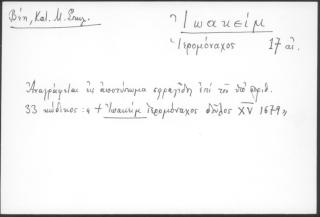 Βέη, Κατ. Μ. Σπηλ.
Ἰωακείμ
Ἱερομόναχος 17 αἰ.
Ἀναγράφεται ὡς ἀποτύπωμα σφραγῖδος ἐπὶ τοῦ ὑπ' ἀριθ.
33 κώδικος : « + Ἰωακείμ ἱερομόναχος δοῦλος XV 1679 »